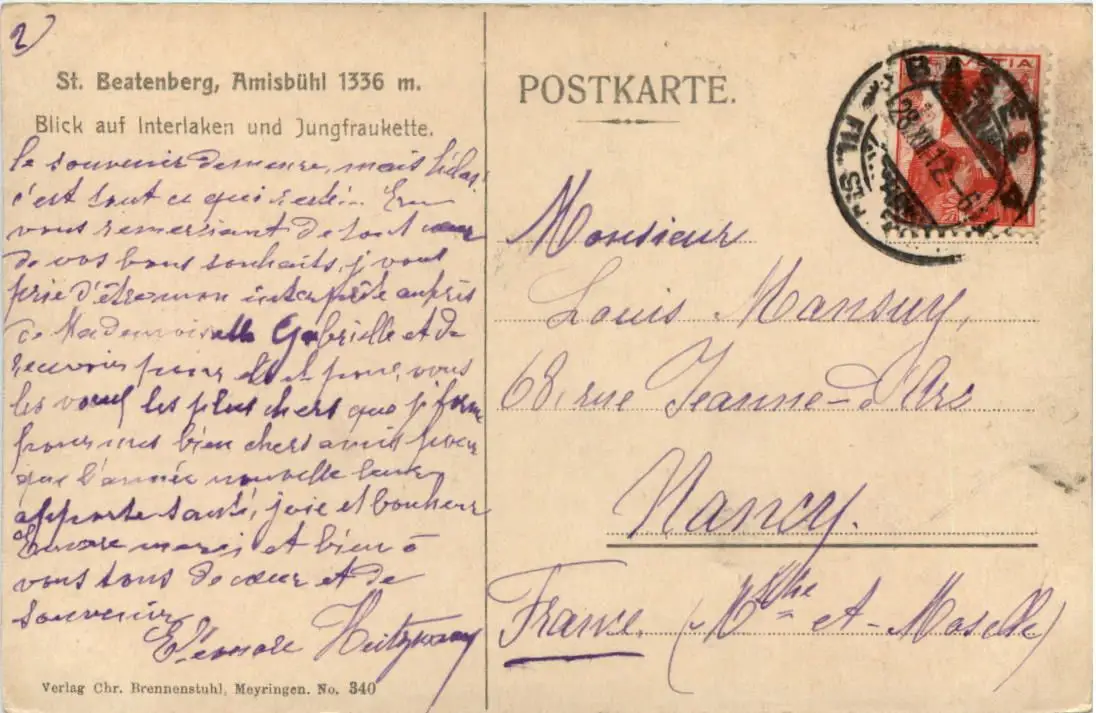 2
St. Beatenberg, Amisbühl 1336 m.
Blick auf Interlaken und Jungfraukette.
le souvenir demeure, mais hélas
c'est tout ce qui reste. En
vous remerciant de tout cœur
de vos bons souhaits, j vous
prie d'être mon interprète auprès
de Mademoiselle Gabrielle et de
recevoir pour elle et pour vous
les vœux les plus chers que je forme
pour mes bien chers amis pour
que l'année nouvelle leur
apporte santé, joie et bonheur
Encore merci et bien à
vous tous de cœur et de
souvenir
Eléonore
Verlag Chr. Brennenstuhl, Meyringen. No. 340
POSTKARTE.
HELVETIA
BASEL
28.XII.12
FIL.
Monsieur
Louis Mansuy,
68, rue Jeanne-d'Arc
Nancy.
France. (Mthe et-Moselle)